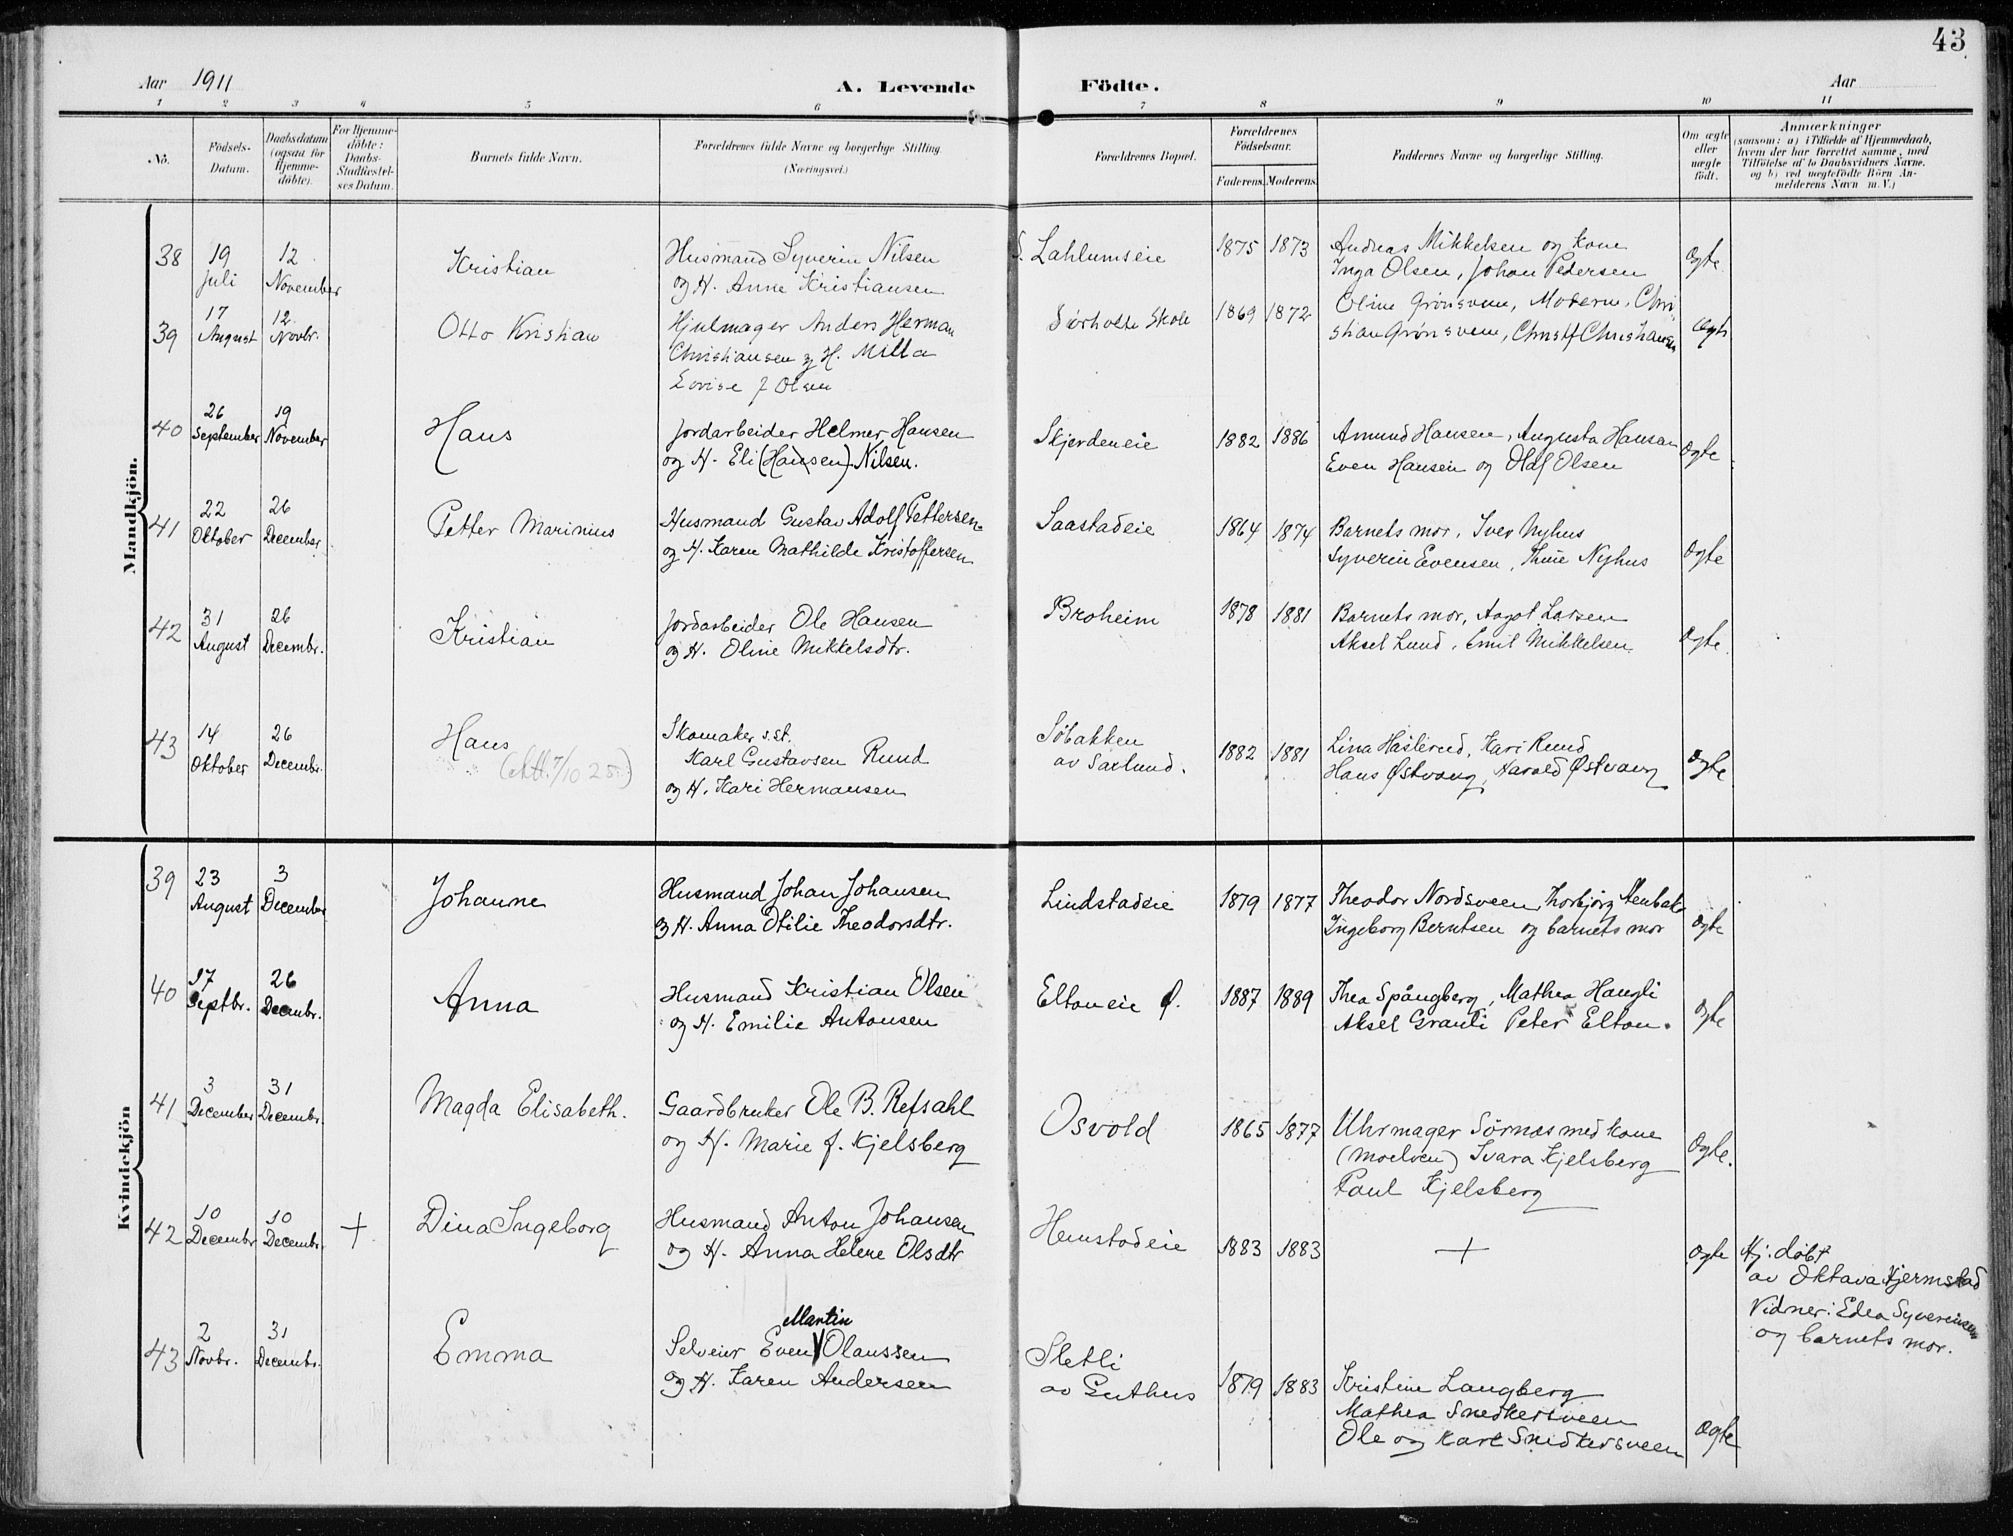 43
Aar 1911
A. Levende Födte.
Aar
1 2 3 4 5 6 7 8 9 10 11
No.
Födsels-Datum.
Daabsdatum (ogsaa for hjemme-döbte).
For Hjemme-döbte: Daabs-Stadfæstel-ses Datum.
Barnets fulde Navn.
Forældrenes fulde Navne og borgerlige Stilling.
(Næringsvei.)
Forældrenes Bopæl.
Forældrenes Födselsaar.
Faderens. Moderens.
Faddernes Navne og borgerlige Stilling.
Om ægte eller uægte født.
Anmærkninger
(saasom: a) i Tilfælde af Hjemmedaab,
hvem der har forrettet samme, med
Tilføielse af to Daabsvidners Navne,
og b) ved uægtefödte Börn An-
melderens Navn m. V.)
Mandkjön.
38 19 Juli 12 November Kristian
Husmand Syverin Nilsen
og H. Anne Kristiansen
Lahlumseie 1875 1873
Andreas Mikkelsen og kone
Inga Olsen, Johan Pedersen
Ægte
39 17 August 12 Novbr. Otto Kristian
Hjulmager Anders Herman
Christiansen og H. Milla
Lovise f Olsen
Sørholte Skole 1869 1872
Oline Grønsveen, Moderen, Chri
stian Grønsveen, Christf Christiansen
Ægte
40 26 September 19 November Hans
Jordarbeider Helmer Hansen
og H. Eli (Hansen) Nilsen.
Skjerdeneie 1882 1886
Amund Hansen, Augusta Hansen
Even Hansen og Olaf Olsen
Ægte
41 22 Oktober 26 December Petter Marinius
Husmand Gustav Adolf Pettersen
og H. Karen Mathilde Kristoffersen
Saastadeie 1864 1874
Barnets mor, Iver Nyhus
Syverin Evensen, Thine Nyhus
Ægte
42 31 August 26 Decembr. Kristian
Jordarbeider Ole Hansen
og H. Oline Mikkelsdtr.
Broheim 1878 1881
Barnets mor, Aagot Larsen
Aksel Lund, Emil Mikkelsen
Ægte
43 14 Oktober 26 Decembr. Hans
(Att. 7/10 25)
Skomaker s.st.
Karl Gustavsen Rund
og H. Kari Hermansen
Søbakken
av Saxlund. 1882 1881
Lina Haslerud, Kari Rund
Hans Østvang, Harald Østvang
Ægte
Kvindekjön
39 23 August 3 December Johanne
Husmand Johan Johansen
og H. Anna Otilie Theodorsdtr.
Lindstadeie 1879 1877
Theodor Nordsveen, Thorbjørg Stenbak
Ingeborg Berntsen og barnets mor
Ægte
40 17 Septbr. 26 Decembr. Anna
Husmand Kristian Olsen
og H. Emilie Antonsen
Eltoneie Ø. 1887 1889
Thea Spångberg, Mathea Haugli
Aksel Granli Peter Elton.
Ægte
41 3 December 31 Decembr. Magda Elisabeth.
Gaardbruker Ole B. Refsahl
og H. Marie f. Kjelsberg
Osvold 1865 1877
Uhrmager Sørnæs med kone
(Moelven) Ivara Kjelsberg
Paul Kjelsberg
Ægte.
42 10 Decembr 10 Decembr. + Dina Ingeborg
Husmand Anton Johansen
og H. Anna Helene Olsdtr
Hemstadeie 1883 1883
+
Ægte
Hj. døbt
av Oktava Hjermstad
Vidner: Edea Syverinsen
og barnets mor.
43 2 Novbr. 31 Decembr. Emma
Martin
Selveier Even Olaussen
og H. Karen Andersen
Sletli
av Guthus 1879 1883
Kristine Langberg
Mathea Snedkersveen
Ole og Karl Snedkersveen
Ægte